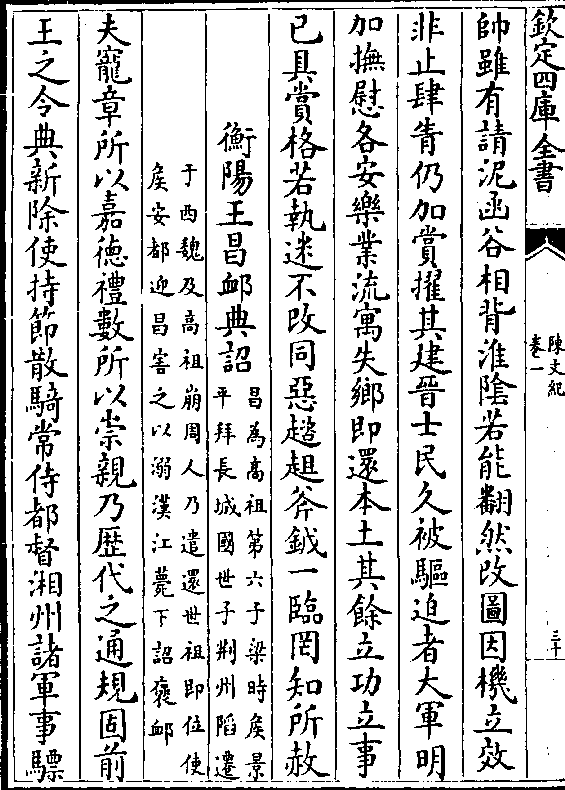 欽定四庫全書
陳文紀
卷一
三十
帥雖有請泥函谷相背淮陰若能翻然改圖因機立效
非止肆眚仍加賞擢其建晉士民久被驅迫者大軍明
加撫慰各安樂業流寓失鄉即還本土其餘立功立事
已具賞格若執迷不改同惡趦趄斧鉞一臨罔知所赦
衡陽王昌䘏典詔
昌為高祖第六子梁時侯景
平拜長城國世子荆州䧟遷
于西魏及高祖崩周人乃遣還世祖即位使
侯安都迎昌害之以溺漢江薨下詔褒䘏
夫寵章所以嘉德禮數所以崇親乃歴代之通規固前
王之令典新除使持節散騎常侍都督湘州諸軍事驃